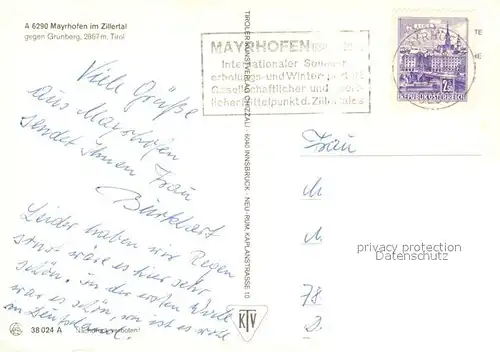 A 6290 Mayrhofen im Zillertal
gegen Grünberg, 2867 m, Tirol
Viele Grüße
aus Mayrhofen
sendet Ihnen Frau
Burkhart
Leider haben wir Regen
sonst wäre es hier sehr
schön. in der ersten Woche
war es schön, wo ist es wohl
in Deutschland.
38 024 A
Nachdruck verboten!
TIROLER KUNSTVERLAG CHIZZALI · 6040 INNSBRUCK · NEU-RUM, KAPLANSTRASSE 10
KTV
MAYRHOFEN
Internationaler Sommer
erholungs- und Winter
Gesellschaftlicher und
licher Mittelpunkt d. Zillertales
REPUBLIK ÖSTERREICH
Frau
M
M
78
D.
privacy protection
Datenschutz